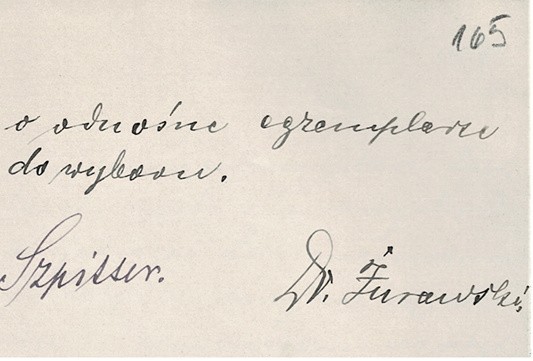 165
o odnośne egzemplarze
do wyboru.
Szpitter.
Dr. Żurawski,